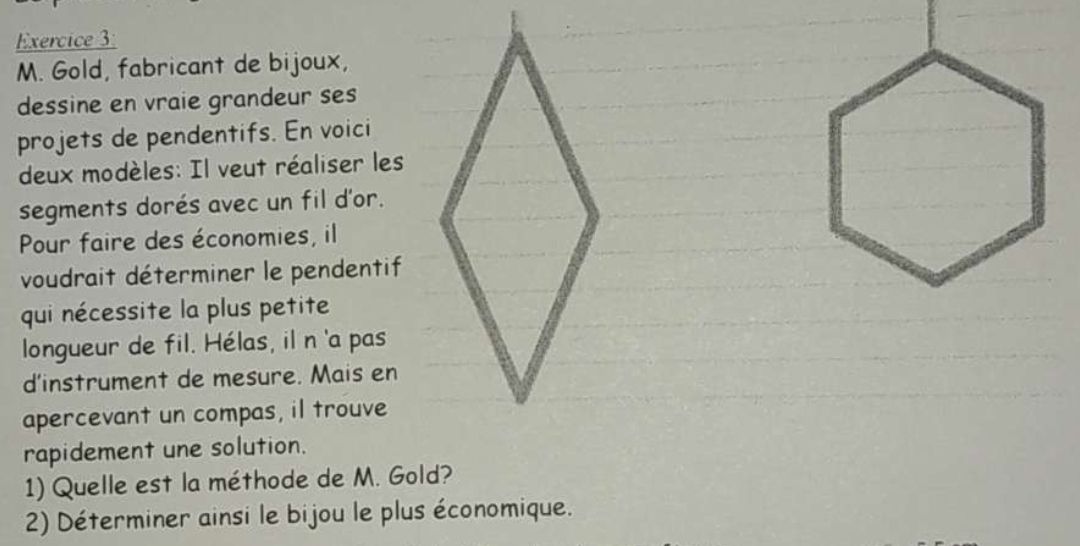 Exercice 3:
M. Gold, fabricant de bijoux,
dessine en vraie grandeur ses
projets de pendentifs. En voici
deux modèles: Il veut réaliser les
segments dorés avec un fil d'or.
Pour faire des économies, il
voudrait déterminer le pendentif
qui nécessite la plus petite
longueur de fil. Hélas, il n 'a pas
d'instrument de mesure. Mais en
apercevant un compas, il trouve
rapidement une solution.
1) Quelle est la méthode de M. Gold?
2) Déterminer ainsi le bijou le plus économique.